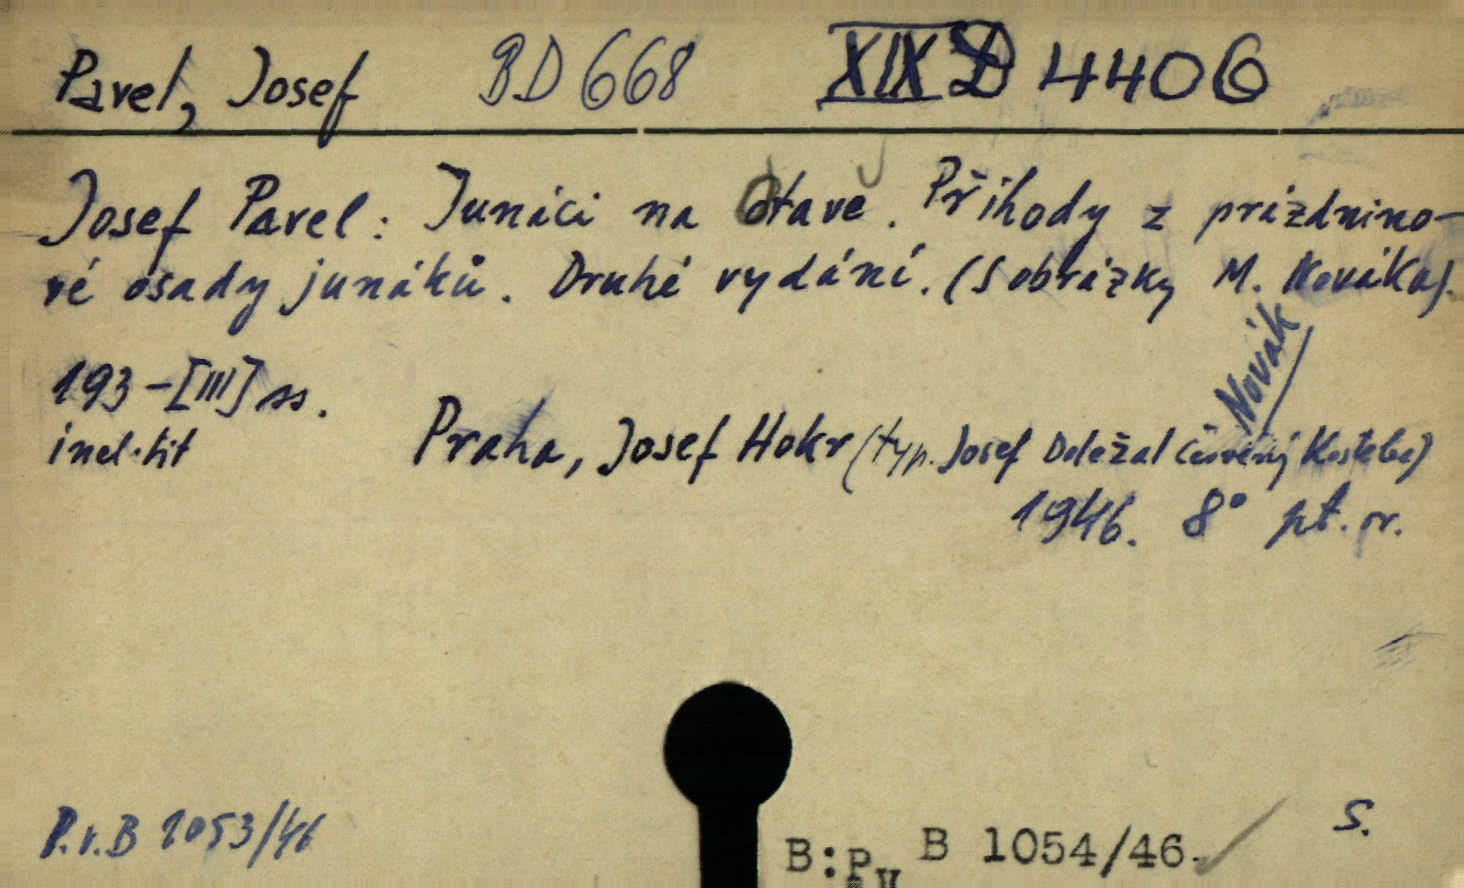 Pavel, Josef BD 668 XIX D 4406
Josef Pavel: Junáci na Otavě. Příhody z prázdnino-
vé osady junáků. Druhé vydání. (S obrázky M. Nováka).
Novák
193-[III] ss.
incl. tit
Praha, Josef Hokr (typ. Josef Doležal Červený Kostelec)
1946. 8° pt. or.
P.v.B 1053/46
B:Pv B 1054/46.
S.